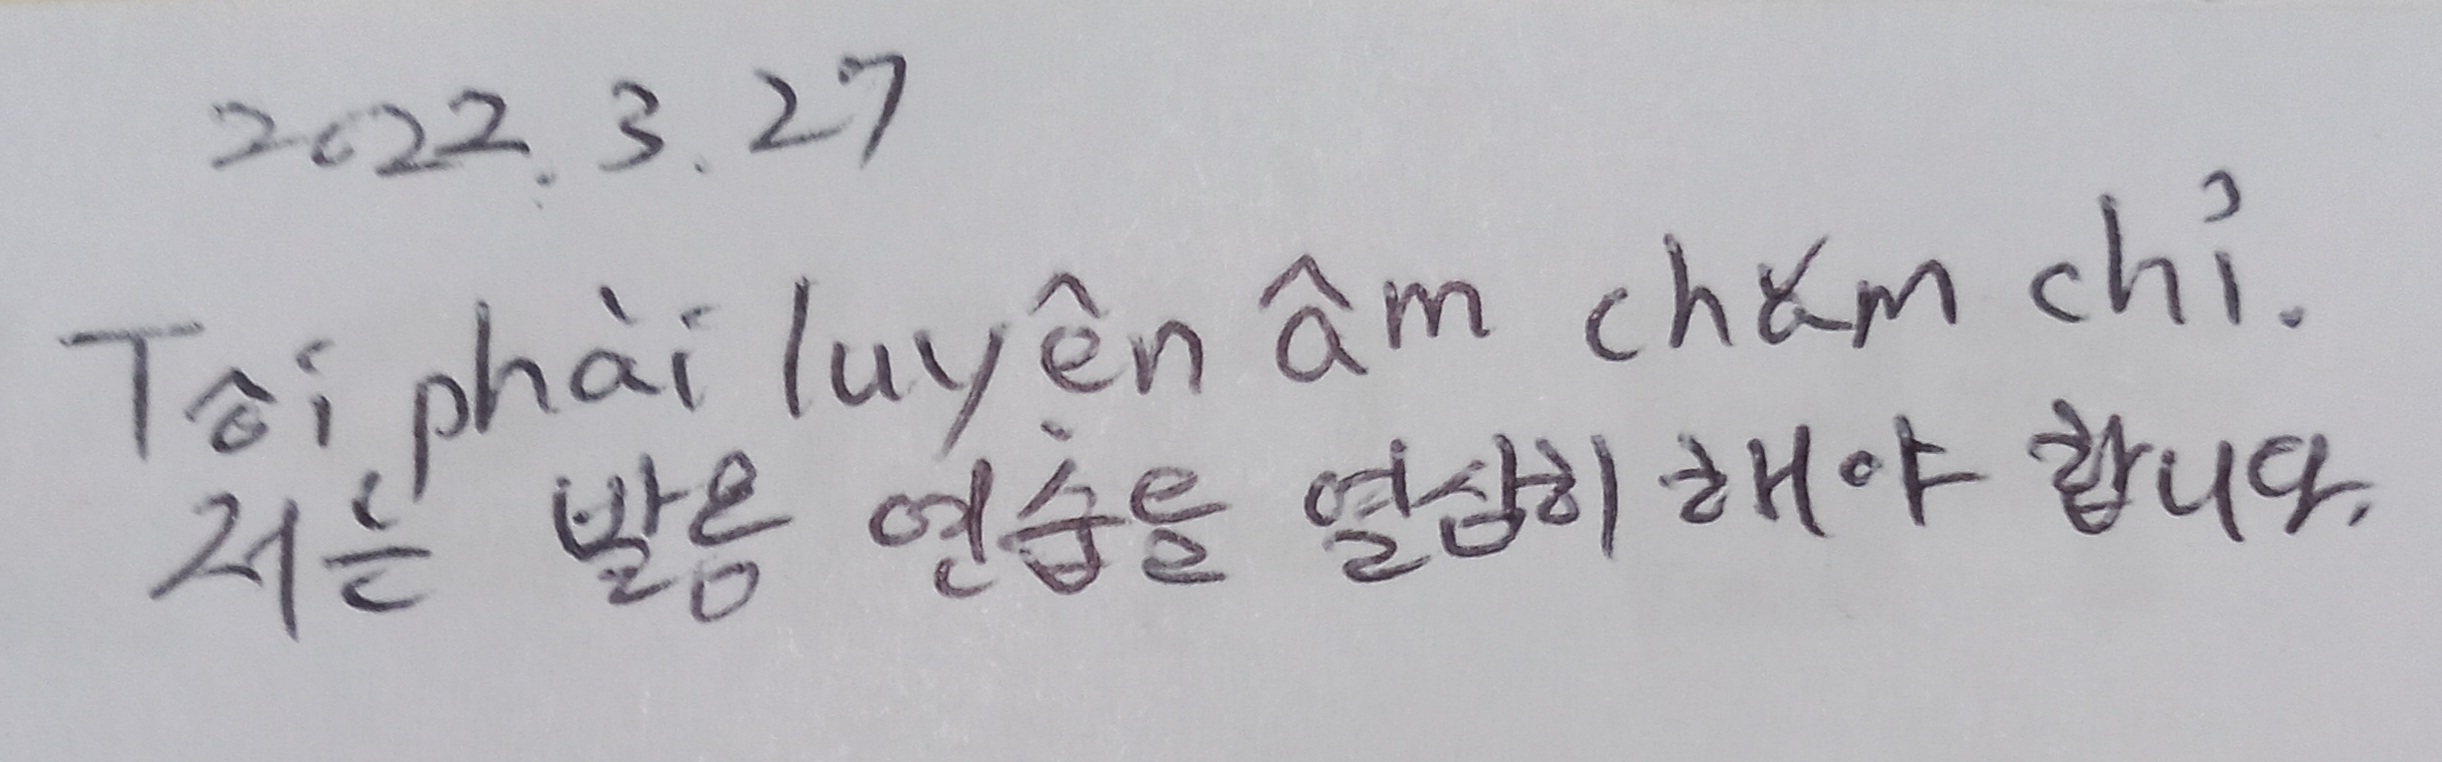 2022. 3. 27
Tôi phài luyện âm chăm chỉ.
저는 발음 연습을 열심히 해야 합니다.